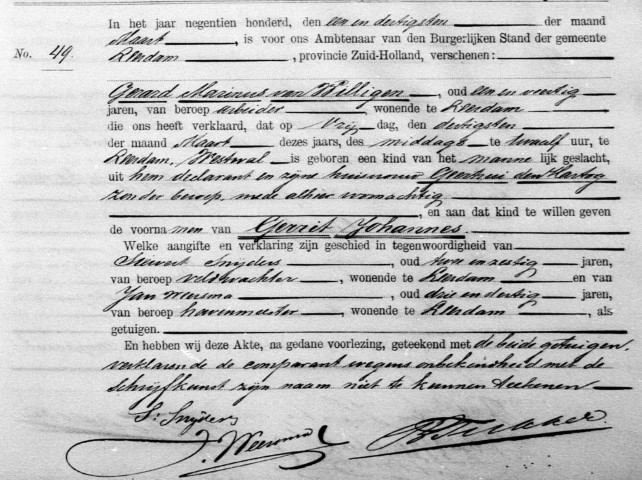 In het jaar negentien honderd, den een en dertigsten der maand
Maart, is voor ons Ambtenaar van den Burgerlijken Stand der gemeente
No. 49. Leerdam, provincie Zuid-Holland, verschenen:
Gerard Marinus van Willigen, oud een en veertig
jaren, van beroep arbeider, wonende te Leerdam
die ons heeft verklaard, dat op Vrijdag, den dertigsten
der maand Maart dezes jaars, des middags te twaalf uur, te
Leerdam, Westwal is geboren een kind van het mannelijk geslacht,
uit hem declarant en zijne huisvrouw Geertrui den Hartog
zonder beroep, mede alhier woonachtig
, en aan dat kind te willen geven
de voornamen van Gerrit Johannes.
Welke aangifte en verklaring zijn geschied in tegenwoordigheid van
Sievert Snijders, oud twee en zestig jaren,
van beroep veldwachter, wonende te Leerdam en van
Jan Weersma, oud drie en dertig jaren,
van beroep havenmeester, wonende te Leerdam, als
getuigen.
En hebben wij deze Akte, na gedane voorlezing, geteekend met de beide getuigen,
verklarende de comparant wegens onbekendheid met de
schrijfkunst zijn naam niet te kunnen teekenen
S. Snijders
J. Weersma